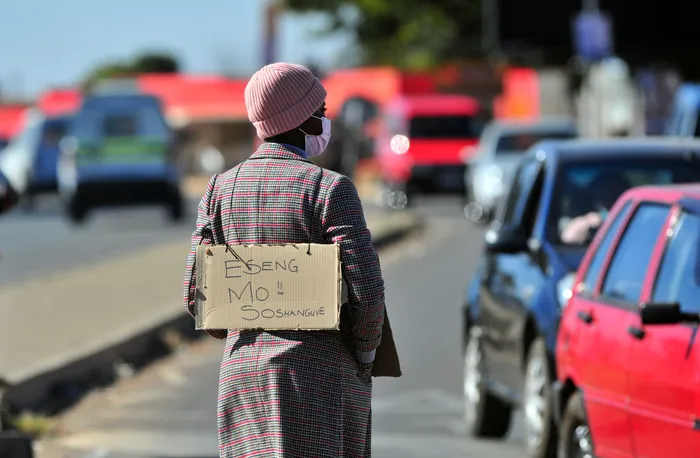 ESENG
MO !!
SOSHANGUVE